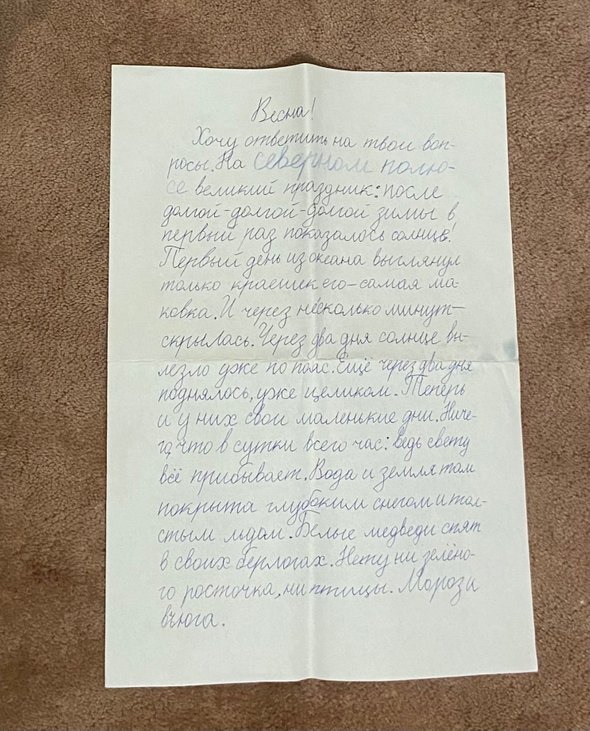 Весна!
Хочу ответить на твои воп-
росы. На северном полю-
се великий праздник: после
долгой-долгой-долгой зимы в
первый раз показалось солнце!
Первый день из океана выглянул
только краешек его-самая ма-
ковка. И через несколько минут-
скрылась. Через два дня солнце вы-
лезло уже по пояс. Ещё через два дня
поднялось, уже целиком. Теперь
и у них свои маленькие дни. Ниче-
го, что в сутки всего час: ведь свету
всё прибывает. Вода и земля там
покрыта глубоким снегом и тол-
стым льдом. Белые медведи спят
в своих берлогах. Нету ни зелёно-
го росточка, ни птицы. Мороз и
вьюга.